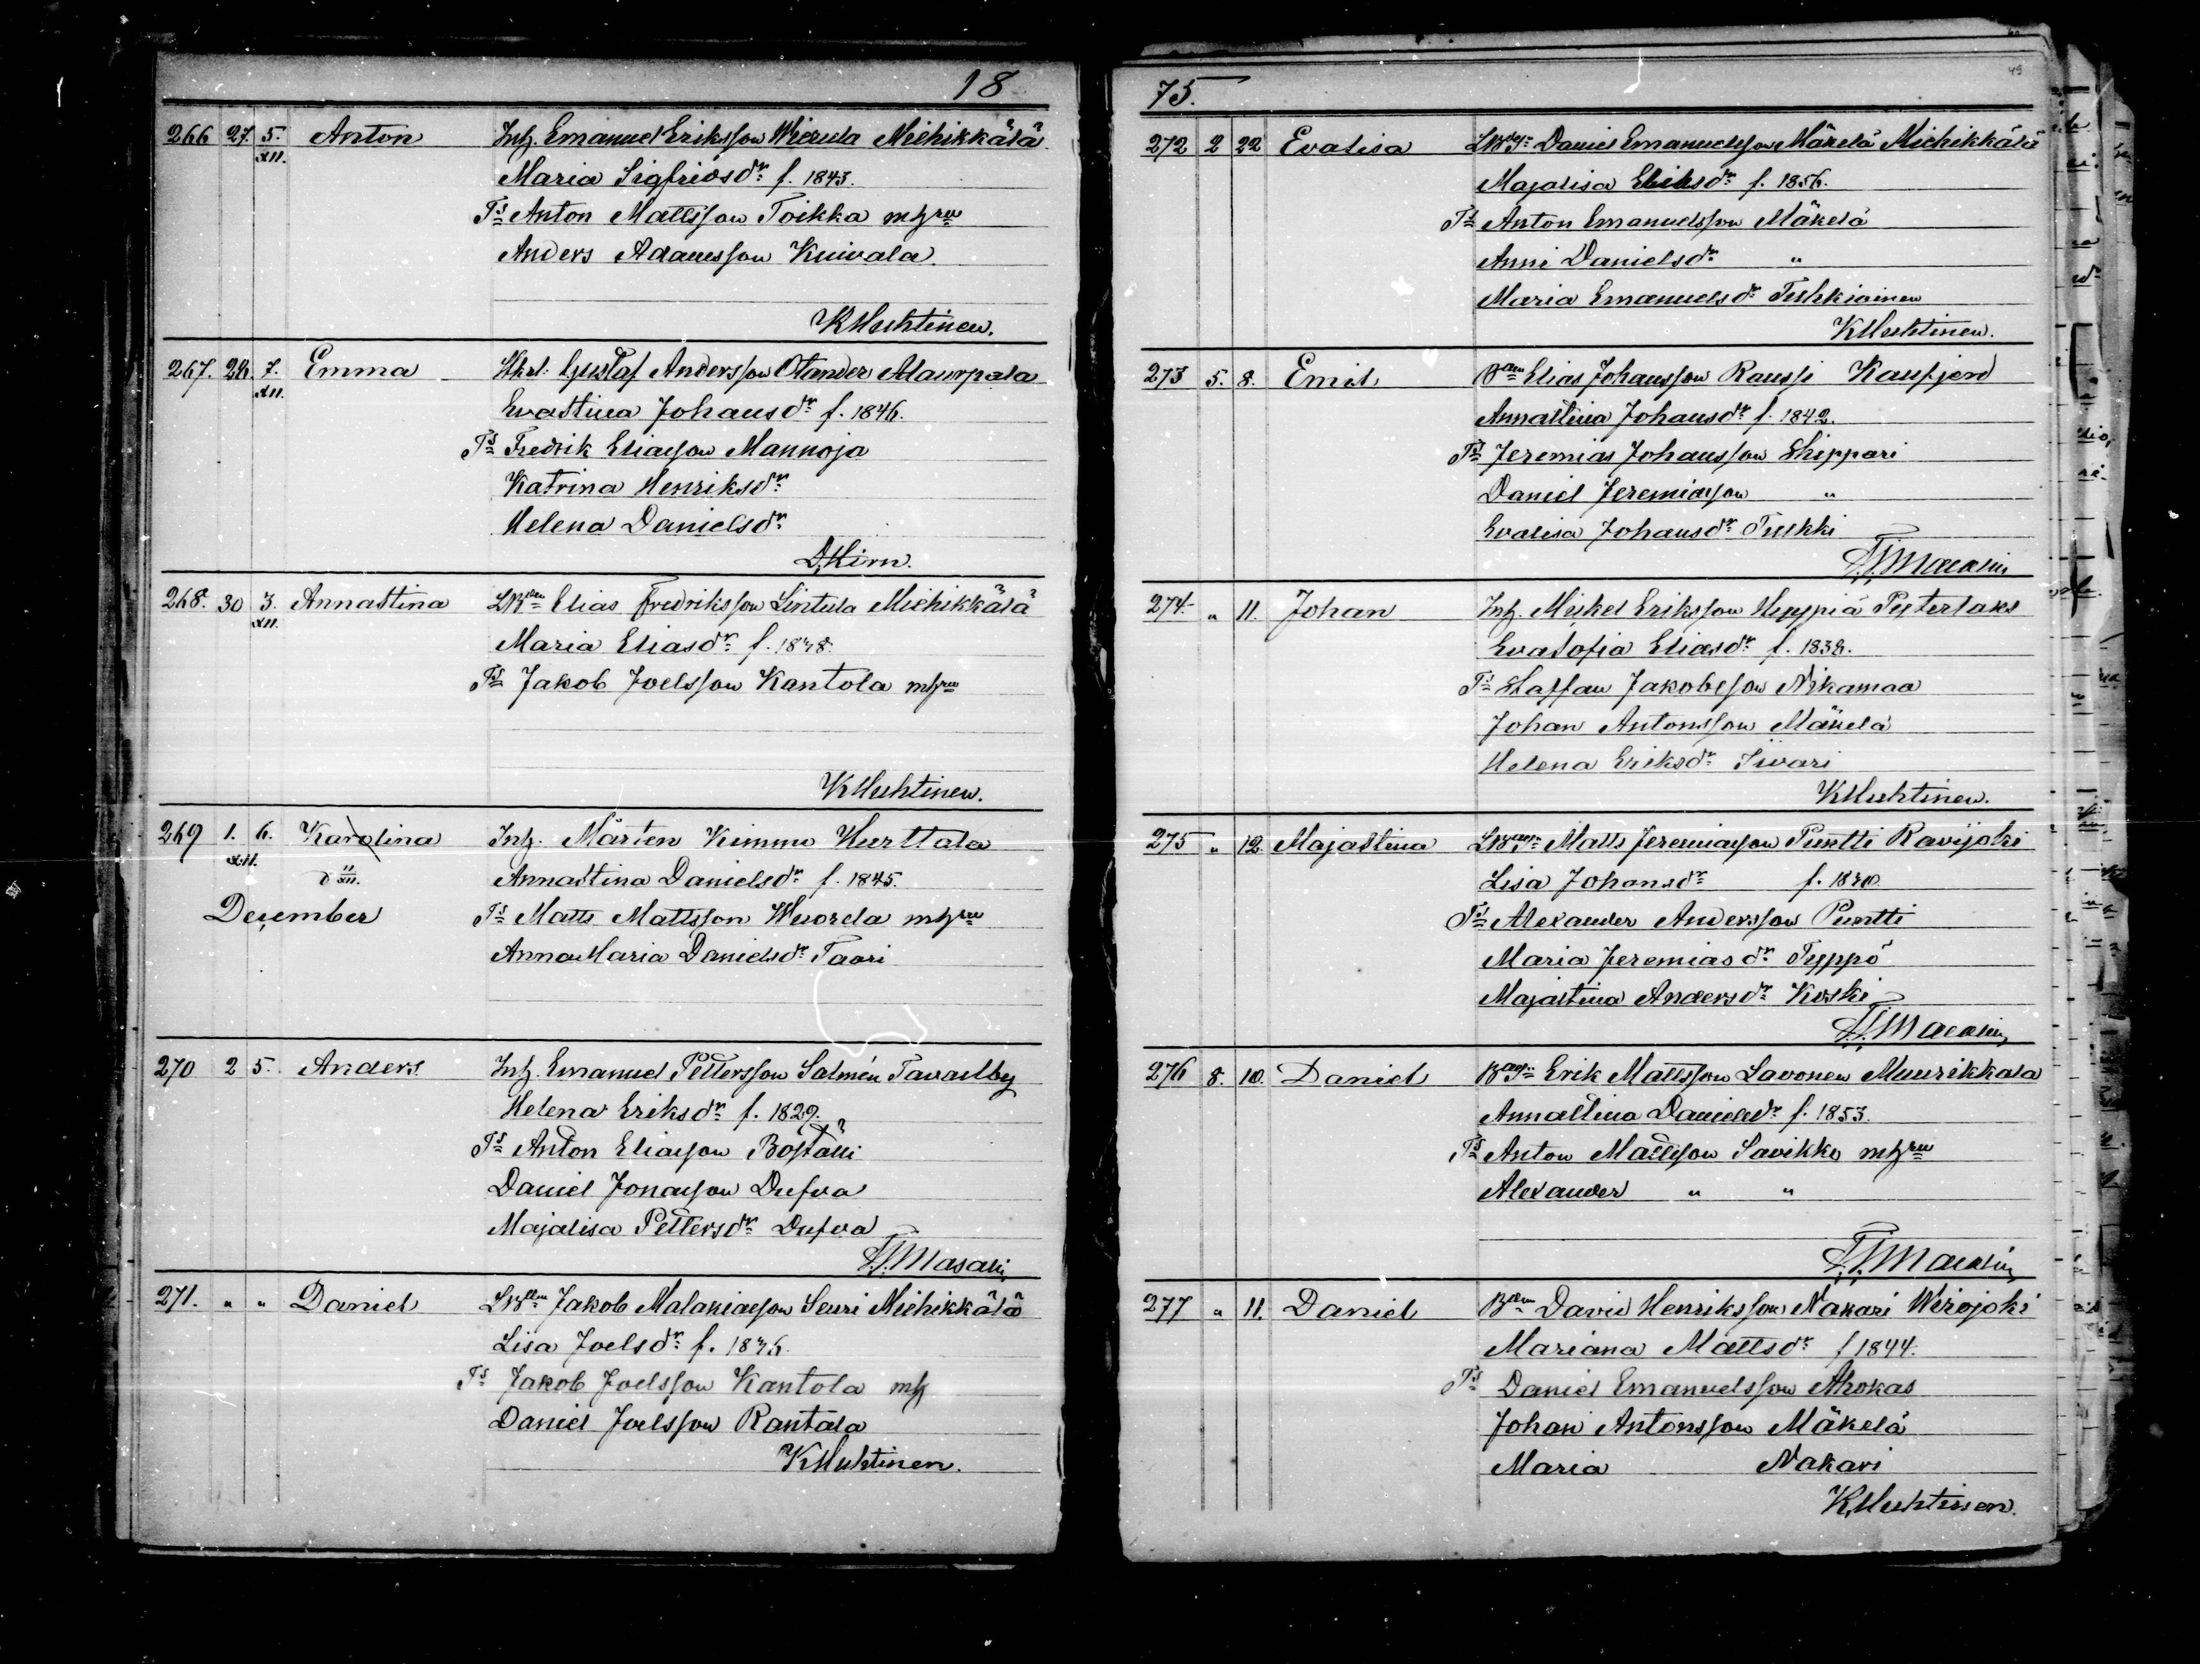 18
266 27. 5. Anton Inh. Emanuel Eriksson Wierula Miehikkälä
XII. Maria Sigfridsdr f. 1843.
Ts Anton Mattsson Toikka mhru
Anders Adamsson Kuivala.
K Huhtinen.
267. 24. 7. Emma Gustaf Andersson Olander Muurpala
XII. Evastina Johansdr f. 1846.
Ts Fredrik Eliasson Mannoja
Katrina Henriksdr
Helena Danielsdr
D. Hirn.
268. 30 3. Annastina LBden Elias Fredriksson Lintula Miehikkälä
XII. Maria Eliasdr f. 1848.
Ts Jakob Joelsson Kantola mhru
K Huhtinen.
269 1. 6. Karolina Inh. Mårten Kimmo Hurttala
XII. d 11/XII. Annastina Danielsdr f. 1845.
December Ts Matts Mattsson Wuorela mhru
AnnaMaria Danielsdr Taari
270 2 5. Anders Inh. Emanuel Pettersson Salmén Tavastby
Helena Eriksdr f. 1829.
Ts Anton Eliasson
Daniel Jonasson Dufva
Majalisa Pettersdr Dufva
F. J. Masalin
271. " " Daniel Jakob Malakiasson Suuri Miehikkälä
Lisa Joelsdr f.
Ts Jakob Joelsson Kantola mh
Daniel Joelsson Rantala
K Huhtinen.
75.
49
272 2 22 Evalisa Daniel Emanuelsson Mäkelä Miehikkälä
Majalisa Eliasdr f. 1856.
Ts Anton Emanuelsson Mäkelä
Anni Danielsdr "
Maria Emanuelsdr
K Huhtinen.
273 5. 8. Emil Elias Johansson Raussi Kausjerd
Annastina Johansdr f. 1842.
Ts Jeremias Johansson Skippari
Daniel Jeremiasson "
Evalisa Johansdr Tuskki
F. J. Masalin
274. " 11. Johan Inh. Mickel Eriksson Huppiä Pyterlaks
Evasofia Eliasdr f.
Ts Staffan Jakobsson Nikamaa
Johan Antonsson Mäkelä
Helena Eriksdr Iivari
K Huhtinen.
275 " 12. Majastina Matts Jeremiasson Puntti Ravijoki
Lisa Johansdr f.
Ts Alexander Andersson Puntti
Maria Jeremiasdr Typpö
Majastina Andersdr Koski
F. J. Masalin
276 8. 10. Daniel Erik Mattsson Lavonen Muurikkala
Annastina Danielsdr f. 1853.
Ts Anton Mattsson Savikko mhru
Alexander " "
F. J. Masalin
277 " 11. Daniel David Henriksson Nakari Wirojoki
Mariana Mattsdr f 1844.
Ts Daniel Emanuelsson Ahokas
Johan Antonsson Mäkelä
Maria Nakari
K. Huhtinen.